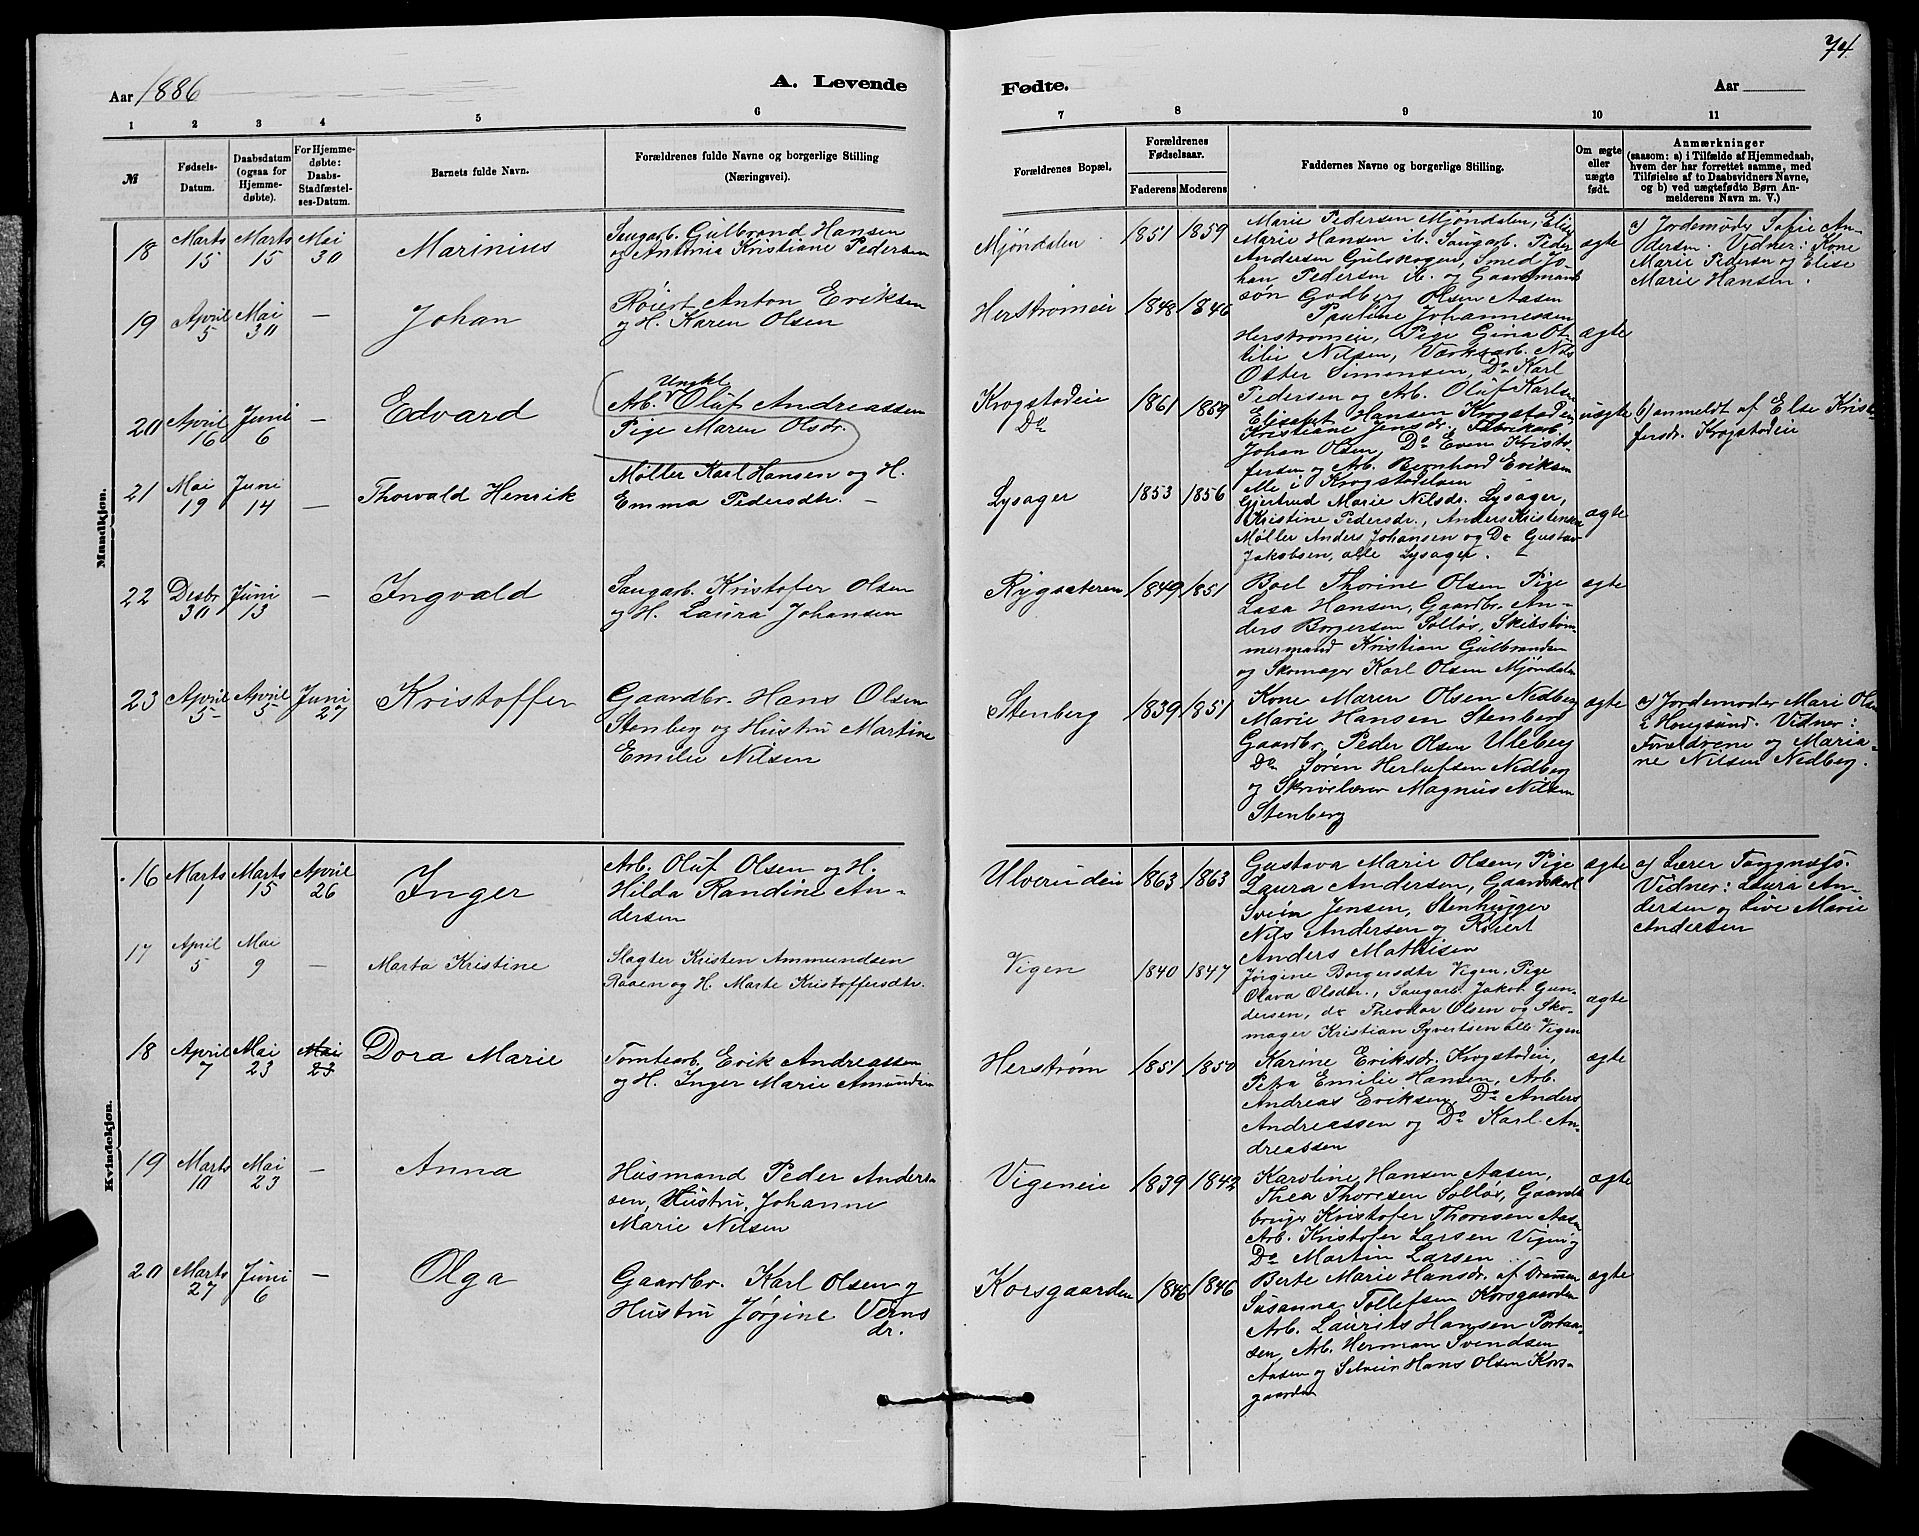 74.
Aar 1886
A. Levende
Fødte.
Aar
1 2 3 4 5 6 7 8 9 10 11
№
Fødsels-
Datum.
Daabsdatum
(ogsaa for
Hjemme-
døbte).
For Hjemme-
døbte:
Daabs-
Stadfæstel-
ses-Datum.
Barnets fulde Navn.
Forældrenes fulde Navne og borgerlige Stilling
(Næringsvei).
Forældrenes Bopæl.
Forældrenes
Fødselsaar.
Faderens Moderens
Faddernes Navne og borgerlige Stilling.
Om ægte
eller
uægte
født.
Anmærkninger
(saasom: a) i Tilfælde af Hjemmedaab,
hvem der har forrettet samme, med
Tilføielse af to Daabsvidners Navne,
og b) ved uægtefødte Børn An-
melderens Navn m. V.)
Mandkjøn.
18
Marts
15
Marts
15
Mai
30
Marinius
Saugarb. Gulbrand Hansen
og Antonia Kristiane Pedersen
Mjøndalen
1851 1859
Marie Pedersen Mjøndalen, Elise
Marie Hansen ib. Saugarb. Peder
Andersen Gulskogen, Smed Jo-
han Pedersen ib. og Gaardmands
søn Godberg Olsen Aasen
ægte
a) Jordemoder Sofie An-
dersen. Vidner: Kone
Marie Pedersen og Elise
Marie Hansen.
19
April
5
Mai
30
—
Johan
Røiert Anton Eriksen
og H. Karen Olsen
Herstrømeie
1848 1846
Pauline Johannessen
Herstrømeie, Pige Gina Ot-
tilie Nilsen, Værksarb. Nils
Otter Simonsen, Do Karl
Pedersen og Arb. Oluf Karlsen
ægte
20
April
16
Juni
6
—
Edvard
Ungkl.
Arb. Oluf Andreassen
Pige Maren Olsdr.
Krogstadeie
Do
1861 1859
Elisabet Hansen Krogstadeie
Kristiane Jensdr. Fabrikarb.
Johan Olsen, Do Even Kristo-
fersen og Arb. Bernhard Eriksen
alle i Krogstadelsen
uægte
b) anmeldt af Else Kristo
fersdr. Krogstadeie
21
Mai
19
Juni
14
—
Thorvald Henrik
Møller Karl Hansen og H.
Emma Pedersdtr. —
Lysager
1853 1856
Gjertrud Marie Nilsdr. Lysager,
Kristine Pedersdr., Anders Kristensen
Møller Anders Johansen og Do Gustav
Jakobsen, alle Lysager.
ægte
22
Desbr
30
Juni
13
—
Ingvald
Saugarb. Kristofer Olsen
og H. Laura Johansen
Rygsæteren
1849 1851
Boel Thorine Olsen Pige
Lasa Hansen, Gaardbr. An-
ders Borgersen Solløs, Skibstøm-
mermand Kristian Gulbrandsen
og Skomager Karl Olsen Mjøndalen
ægte
23
April
5
April
5
Juni
27
Kristoffer
Gaardbr. Hans Olsen
Stenberg og Hustru Martine
Emilie Nilsen
Stenberg
1839 1851
Kone Maren Olsen Nedberg
Marie Hansen Stenberg
Gaardbr. Peder Olsen Uleberg
Do Søren Herlufsen Nedberg
og Skrivelærer Magnus Nilsen
Stenberg
ægte
a) Jordemoder Mari Olsen
i Hougsund. Vidner:
Forældrene og Maria-
ne Nilsen Nedberg.
Kvindekjøn.
16
Marts
1
Marts
15
April
26
Inger
Arb. Oluf Olsen og H.
Hilda Randine An-
dersen
Ulverudeie
1863 1863
Gustava Marie Olsen, Pige
Laura Andersen, Gaardskarl
Svein Jensen, Stenhugger
Nils Andersen og Røiert
Anders Mathisen
ægte
a) Lærer Tangnæss.
Vidner: Laura An-
dersen og Live Marie
Andersen
17
April
5
Mai
9
—
Marta Kristine
Slagter Kristen Ammundsen
Raaen og H. Marte Kristoffersdtr.
Vigen
1840 1847
Jørgine Borgersdtr Vigen, Pige
Olava Olsdtr., Saugarb. Jakob Gun-
dersen, do Theodor Olsen og Sko-
mager Kristian Syvertsen alle Vigen
ægte
18
April
7
Mai
23
Mai
23
Dora Marie
Tomtearb. Erik Andreassen
og H. Inger Marie Amundsen
Herstrøm
1851 1850
Karine Eriksdr. Krogstadeie,
Petra Emilie Hansen, Arb.
Andreas Eriksen, Do Anders
Andreassen og Do Karl An-
dreassen
ægte
19
Marts
10
Mai
23
—
Anna
Husmand Peder Anders-
sen, Hustru, Johanne
Marie Nilsen
Vigeneie
1839 1842
Karoline Hansen Aasen,
Thea Thoresen Solløs, Gaard-
bruger Kristofer Thoresen Aasen
Arb. Kristofer Larsen Vigen og
Do Martin Larsen
ægte
20
Marts
27
Juni
6
—
Olga
Gaardbr. Karl Olsen og
Hustru Jørgine Verns
dr.
Korsgaarden
1846 1846
Berte Marie Hansdr. af Drammen
Susanna Tollefsen Korsgaarden
Arb. Laurits Hansen Portaa-
sen, Arb. Herman Svendsen
Aasen og Selveier Hans Olsen Kors-
gaarden
ægte